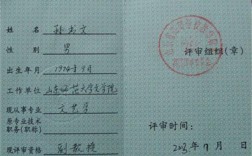 姓名 孙书文
性别 男
出生年月 1974年9月
工作单位 山东师范大学文学院
现从事专业 文艺学
原专业技术
职务(职称)
现评审资格 副教授
评审组织(章)
评审时间:
2003年9月 日